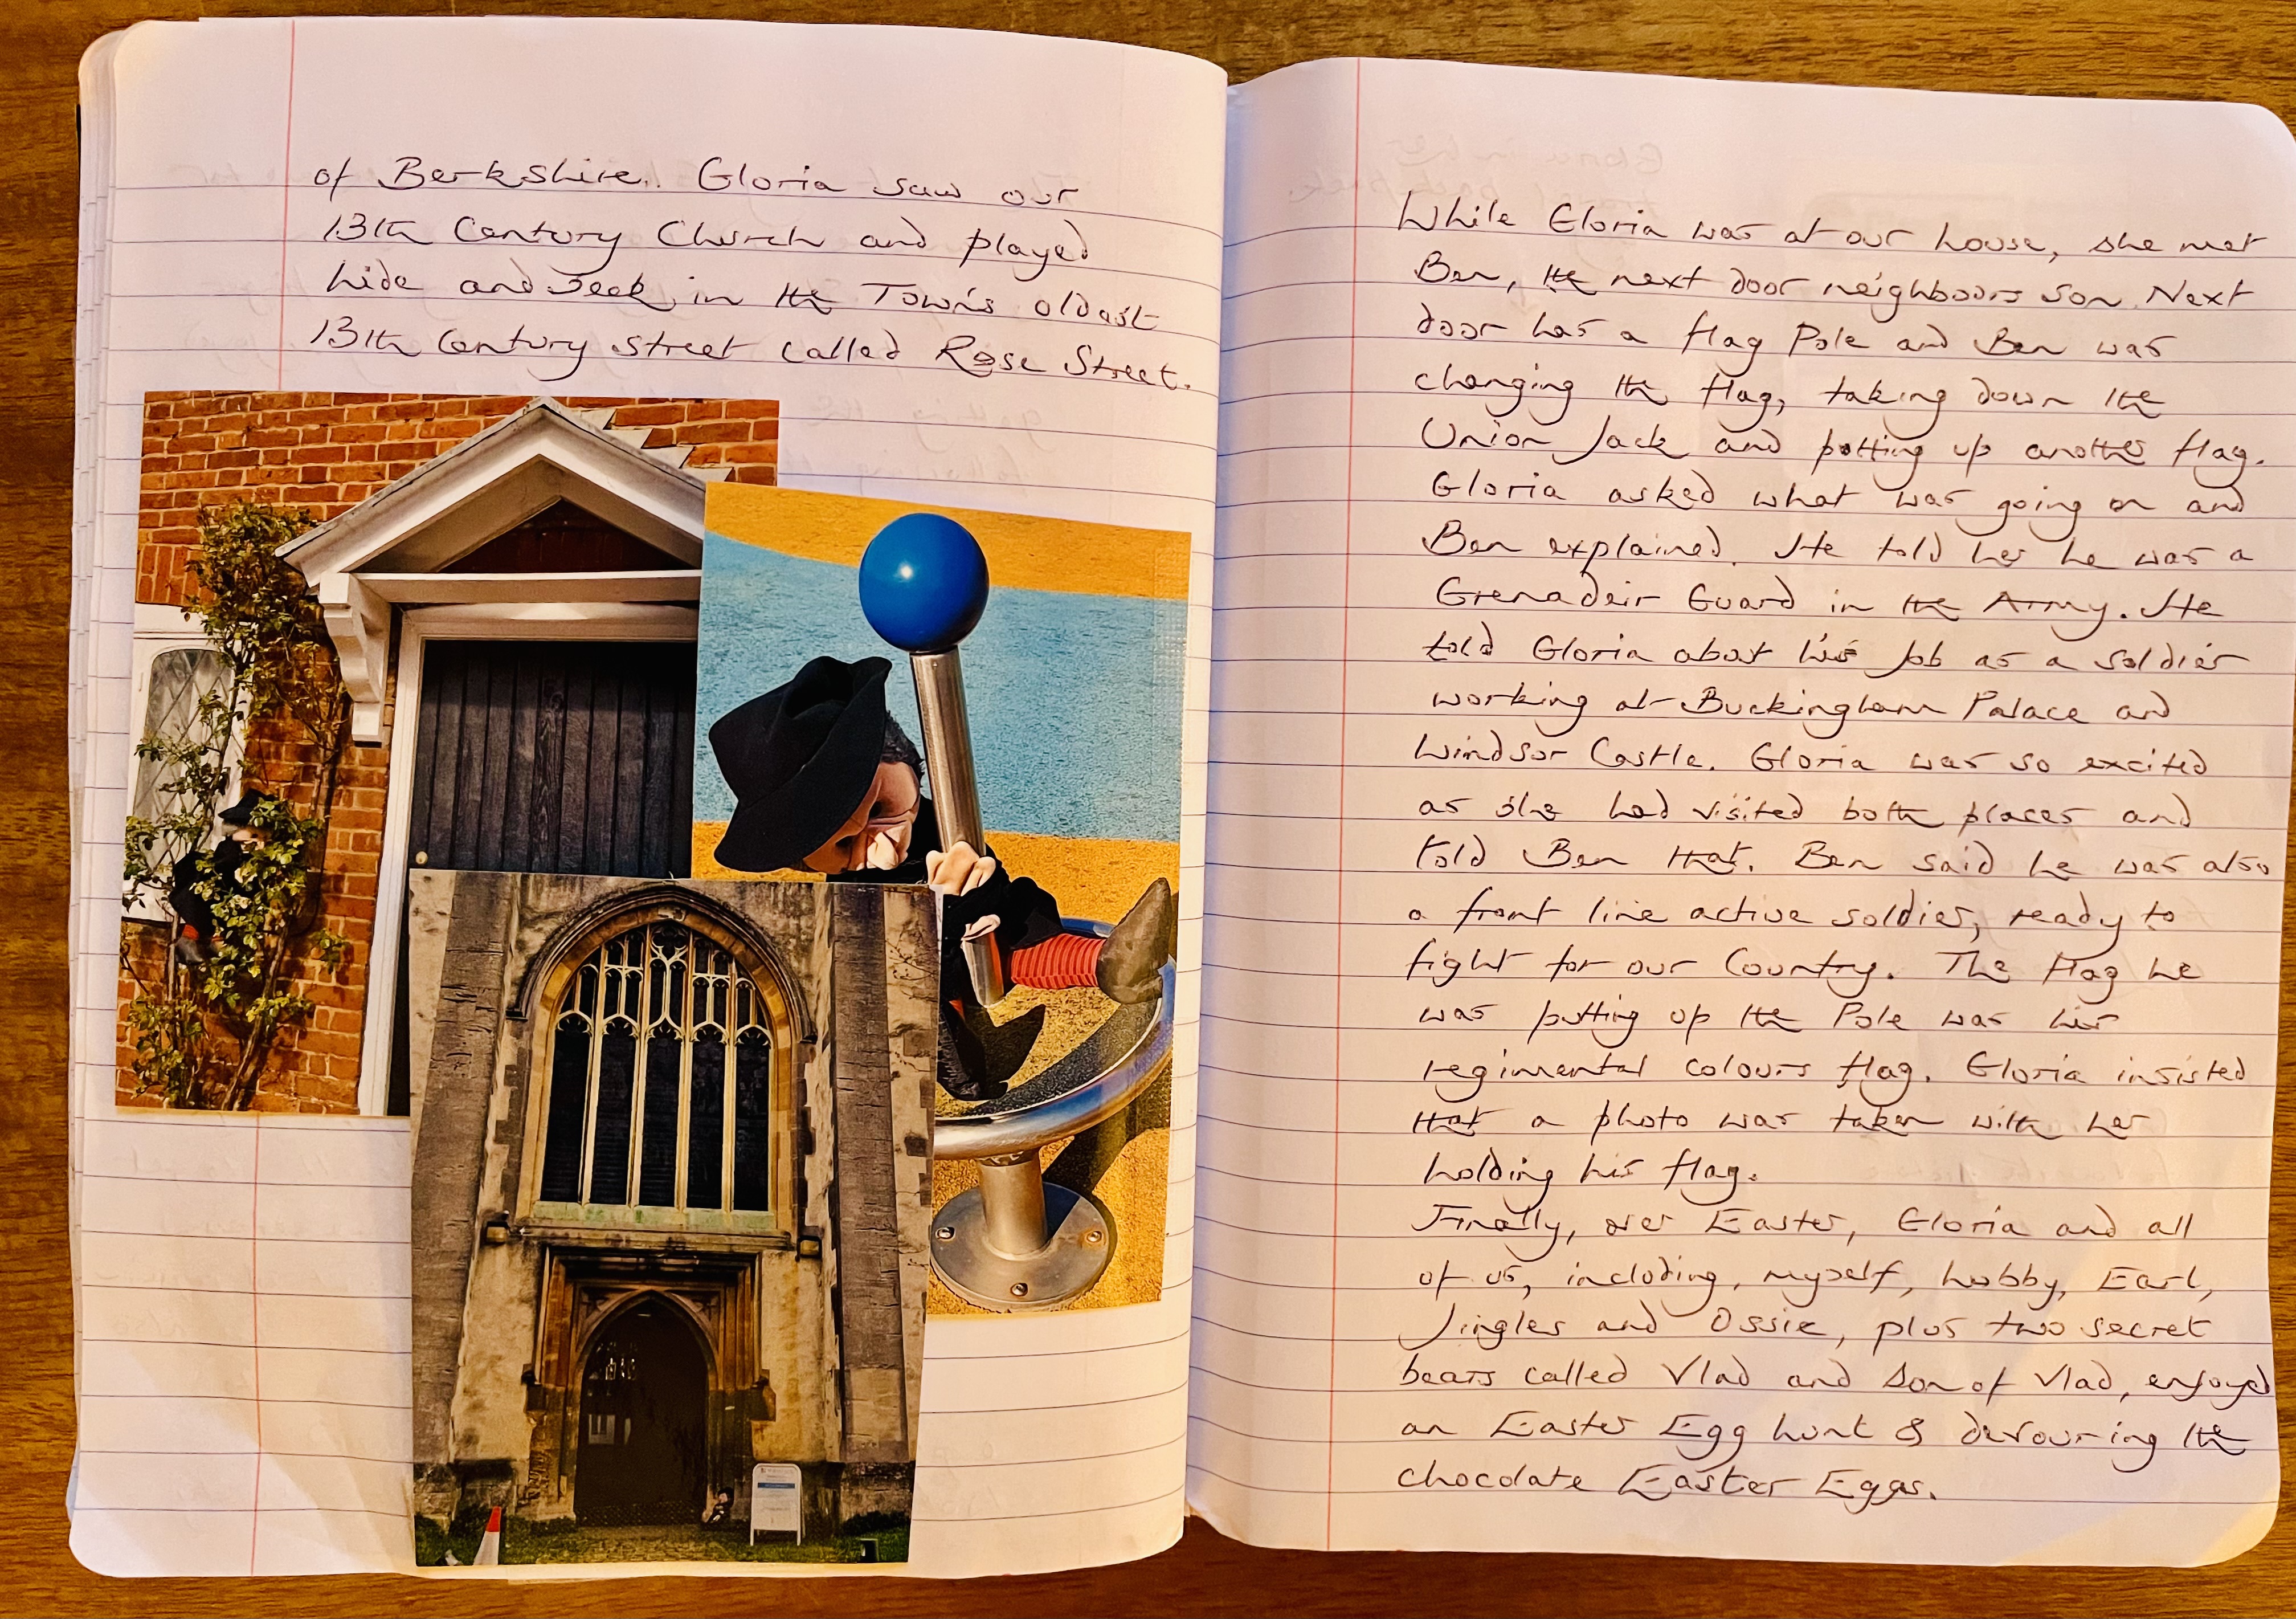 of Berkshire. Gloria saw our
13th Century Church and played
hide and seek in the Town's oldest
13th Century street called Rose Street.
While Gloria was at our house, she met
Ben, the next door neighbours son. Next
door has a flag Pole and Ben was
changing the flag, taking down the
Union Jack and putting up another flag.
Gloria asked what was going on and
Ben explained. He told her he was a
Grenadeir Guard in the Army. He
told Gloria about his job as a soldier
working at Buckingham Palace and
Windsor Castle. Gloria was so excited
as she had visited both places and
told Ben that. Ben said he was also
a front line active soldier, ready to
fight for our Country. The flag he
was putting up the Pole was his
regimental colours flag. Gloria insisted
that a photo was taken with her
holding his flag.
Finally, over Easter, Gloria and all
of us, including, myself, hubby, Earl,
Jingles and Ossie, plus two secret
bears called Vlad and Son of Vlad, enjoyed
an Easter Egg hunt & devouring the
chocolate Easter Eggs.